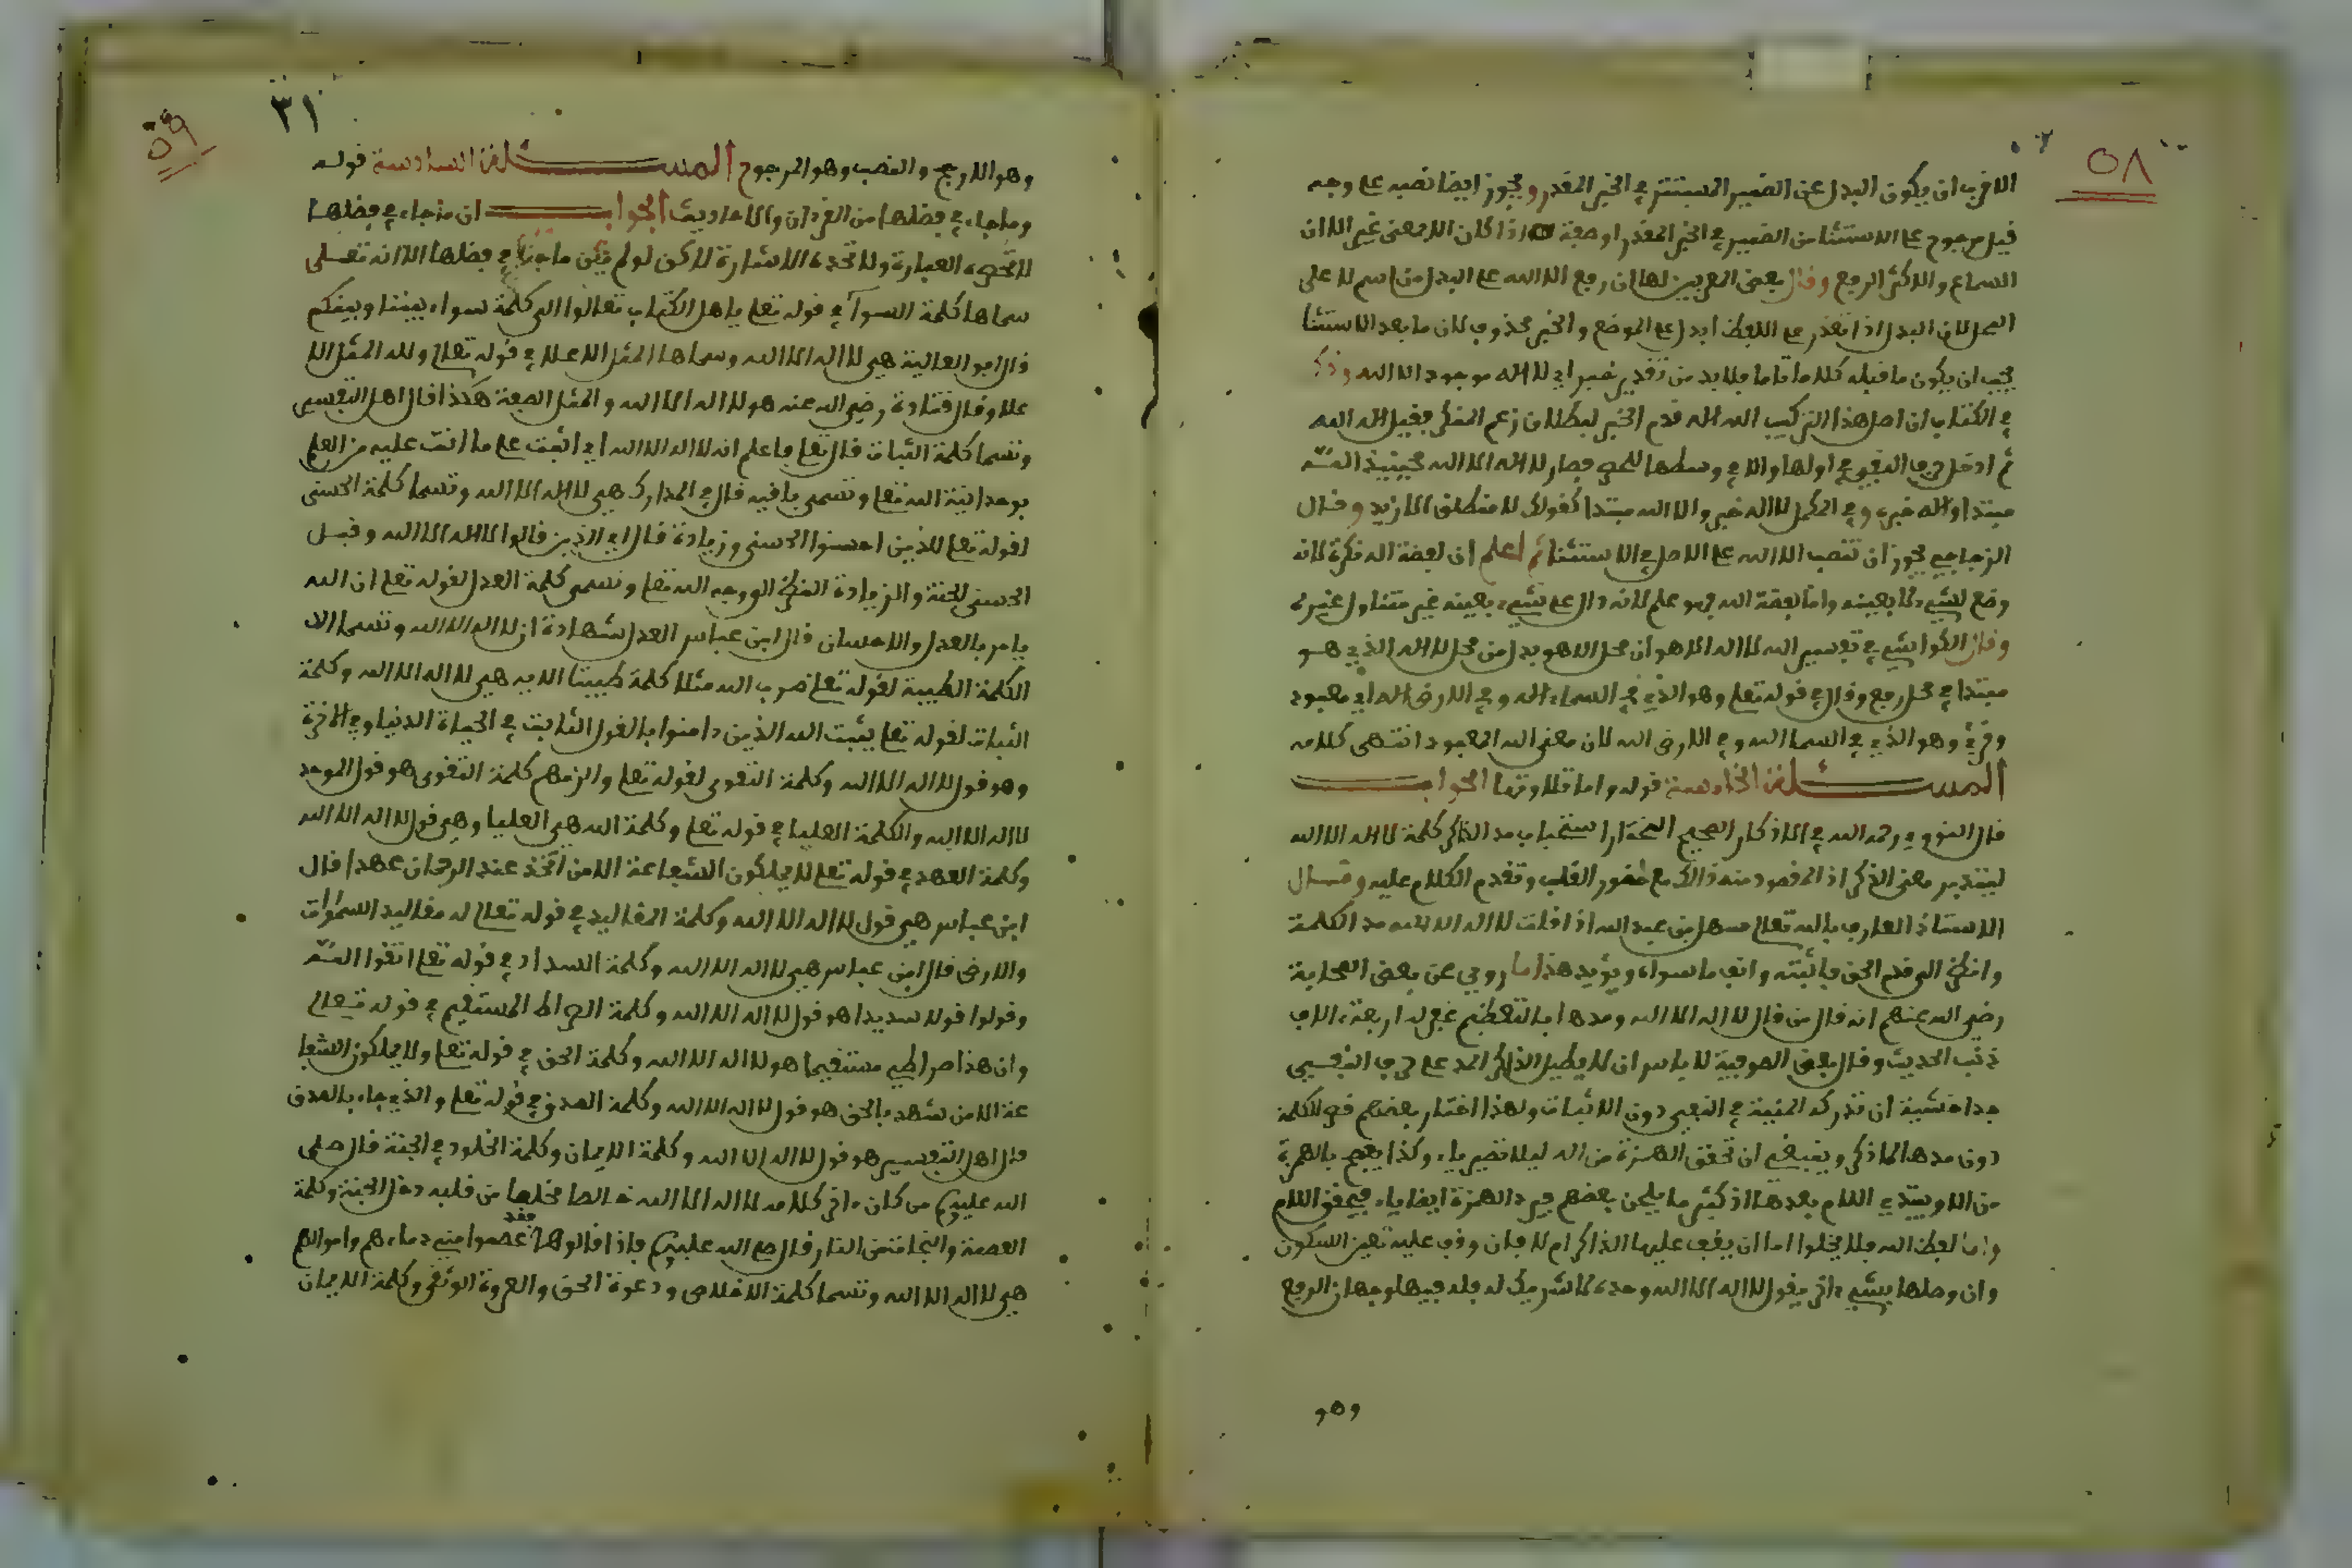 ٥٨
الاقرب ان يكون البدل عن الضمير المستتر في الخبر المقدر ويجوز ايضا نصبه على وجه
قيل مرجوح على الاستثنا من الضمير في الخبر المقدر او صفة اذا كان الا بمعنى غير الا ان
السماع والاكثر الرفع وقال بعض المعربين لها ان رفع الا الله على البدل من اسم لا على
المحل لان البدل اذا تعذر على اللفظ ابدل على الموضع والخبر محذوف لان ما بعد الاستثنا
يجب ان يكون ما قبله كلاما تاما فلا بد من تقدير خبر اي لا اله موجود الا الله وذكر
في الكتاب ان اصل هذا التركيب الله اله قدم الخبر لبطلان زعم المنكر فقيل اله الله
ثم ادخل حرف النفي في اولها والا في وسطها للحصر فصار لا اله الا الله فحينئذ الله
مبتدا واله خبره وفي المكمل لا اله خبر والا الله مبتدا كقولك لا منطلق الا زيد وقال
الزجاجي يجوز ان تنصب الا الله على الاصل في الاستثنا ثم اعلم ان لفظة اله نكرة لانه
وضع لشيء لا بعينه واما لفظة الله فهو علم لانه دال على شيء بعينه غير متناول غيره
وقال الكواشي في تفسير الله لا اله الا هو ان محل الا هو بدل من محل لا اله الذي هو
مبتدا في محل رفع وقال في قوله تعلى وهو الذي في السماء اله وفي الارض اله اي معبود
وقرئ وهو الذي في السما الله وفي الارض الله لان معنى الله المعبود انتهى كلامه
المسئلة الخامسة قوله واما تلاوتها الجواب
قال النووي رحمه الله في الاذكار الصحيح المختار استحباب مد الذاكر كلمة لا اله الا الله
ليتدبر معنى الذكر اذ المقصود منه ذالك مع حضور القلب وتقدم الكلام عليه وقال
الاستاذ العارف بالله تعلى سهل بن عبد الله اذا قلت لا اله الا الله مد الكلمة
وانظر الى قدم الحق فاثبته وانف ما سواه ويؤيد هذا ما روي عن بعض الصحابة
رضي الله عنهم انه قال من قال لا اله الا الله ومدها بالتعظيم غفر له اربعة الاف
ذنب الحديث وقال بعض الصوفية لا باس ان لا يطيل الذاكر المد على حرف النفي
جدا خشية ان تدركه المنية في النفي دون الاثبات ولهذا اختار بعضهم قصر الكلمة
دون مدها الا ذكر وينبغي ان تحقق الهمزة من اله ليلا تصير ياء وكذا يفصح بالهمزة
من الا ويشدد اللام بعدها اذ كثير ما يلحن بعضهم فيرد الهمزة ايضا ياء فيخفف اللام
واما لفظ الله فلا يخلوا اما ان يقف عليها الذاكر ام لا فان وقف عليه تعين السكون
وان وصلها بشيء ءاخر يقول لا اله الا الله وحده لا شريك له فله فيها وجهان الرفع
وهو
٣١
٥٩
وهو الارجح والنصب وهو المرجوح المسئلة السادسة قوله
وما جاء في فضلها من القرءان والاحاديث الجواب ان ما جاء في فضلها
لا تحصره العبارة ولا تحده الاشارة لاكن لو لم يكن ما جاء في فضلها الا انه تعلى
سماها كلمة السوآ في قوله تعلى ياهل الكتاب تعالوا الى كلمة سواء بيننا وبينكم
قال ابو العالية هي لا اله الا الله وسماها المثل الاعلا في قوله تعلى ولله المثل الا
علا وقال قتادة رضي الله عنه هو لا اله الا الله والمثل الصفة هكذا قال اهل التفسير
وتسما كلمة الثبات قال تعلى فاعلم انه لا اله الا الله اي اثبت على ما انت عليه من العلم
بوحدانية الله تعلى وتسمى باقيه قال في المدارك هي لا اله الا الله وتسما كلمة الحسنى
لقوله تعلى للذين احسنوا الحسنى وزيادة قال اي الذين قالوا لا اله الا الله وقيل
الحسنى الجنة والزيادة النظر الى وجه الله تعلى وتسمى كلمة العدل لقوله تعلى ان الله
يامر بالعدل والاحسان قال ابن عباس العدل شهادة ان لا اله الا الله وتسما الا
الكلمة الطيبة لقوله تعلى ضرب الله مثلا كلمة طيبتا الايه هي لا اله الا الله وكلمة
الثبات لقوله تعلى يثبت الله الذين ءامنوا بالقول الثابت في الحياة الدنيا وفي الاخرة
وهو قول لا اله الا الله وكلمة التقوى لقوله تعلى والزمهم كلمة التقوى هو قول الموحد
لا اله الا الله والكلمة العليا في قوله تعلى وكلمة الله هي العليا وهي قول لا اله الا الله
وكلمة العهد في قوله تعلى لا يملكون الشفاعة الا من اتخذ عند الرحمان عهدا قال
ابن عباس هي قول لا اله الا الله وكلمة المقاليد في قوله تعالى له مقاليد السماوات
والارض قال ابن عباس هي لا اله الا الله وكلمة السداد في قوله تعلى اتقوا الله
وقولوا قولا سديدا هو قول لا اله الا الله وكلمة الصراط المستقيم في قوله تعالى
وان هذا صراطي مستقيما هو لا اله الا الله وكلمة الحق في قوله تعلى ولا يملكون الشفا
عة الا من شهد بالحق هو قول لا اله الا الله وكلمة الصدق في قوله تعلى والذي جاء بالصدق
قال اهل التفسير هو قول لا اله الا الله وكلمة الايمان وكلمة الخلود في الجنة قال صلى
الله عليه من كان ءاخر كلامه لا اله الا الله خالصا مخلصا من قلبه دخل الجنة وكلمة
العصمة والنجاة من النار قال صلى الله عليه فاذا قالوها فقد عصموا مني دماءهم واموالهم
هي لا اله الا الله وتسما كلمة الاخلاص ودعوة الحق والعروة الوثقى وكلمة الايمان